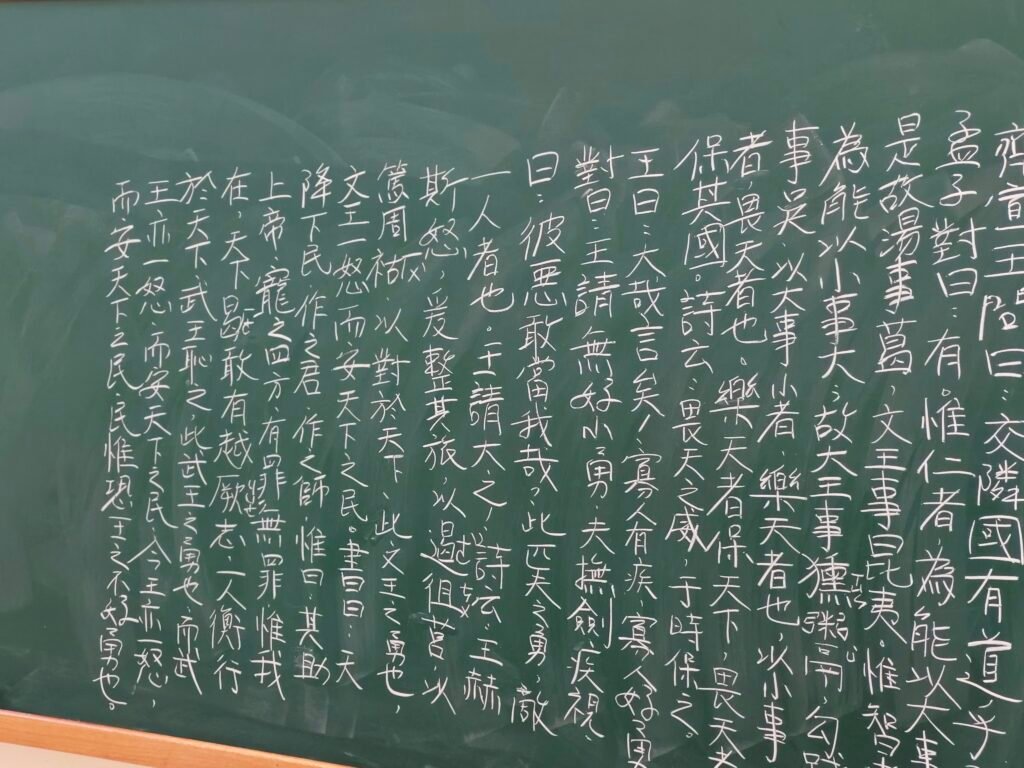 齊宣王問曰：交隣國有道乎
孟子對曰：有。惟仁者為能以大事
是故湯事葛，文王事昆夷。惟智者
為能以小事大，故大王事獯鬻，勾踐
事吳。以大事小者，樂天者也，以小事
者，畏天者也。樂天者保天下，畏天者
保其國。詩云：畏天之威，于時保之。
王曰：大哉言矣，寡人有疾，寡人好勇
對曰：王請無好小勇，夫撫劍疾視
曰：彼惡敢當我哉，此匹夫之勇，敵
一人者也。王請大之，詩云：王赫
斯怒，爰整其旅，以遏徂莒，以
篤周祜，以對於天下，此文王之勇也，
文王一怒而安天下之民。書曰：天
降下民，作之君，作之師，惟曰，其助
上帝，寵之四方，有罪無罪惟我
在，天下曷敢有越厥志，一人衡行
於天下，武王恥之，此武王之勇也，而武
王亦一怒，而安天下之民，今王亦一怒，
而安天下之民，民惟恐王之不好勇也。